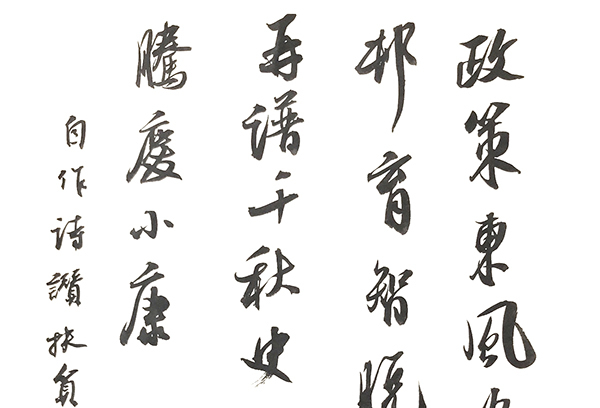 政策東風
邨育智
再譜千秋史
騰慶小康
自作詩讚扶貧